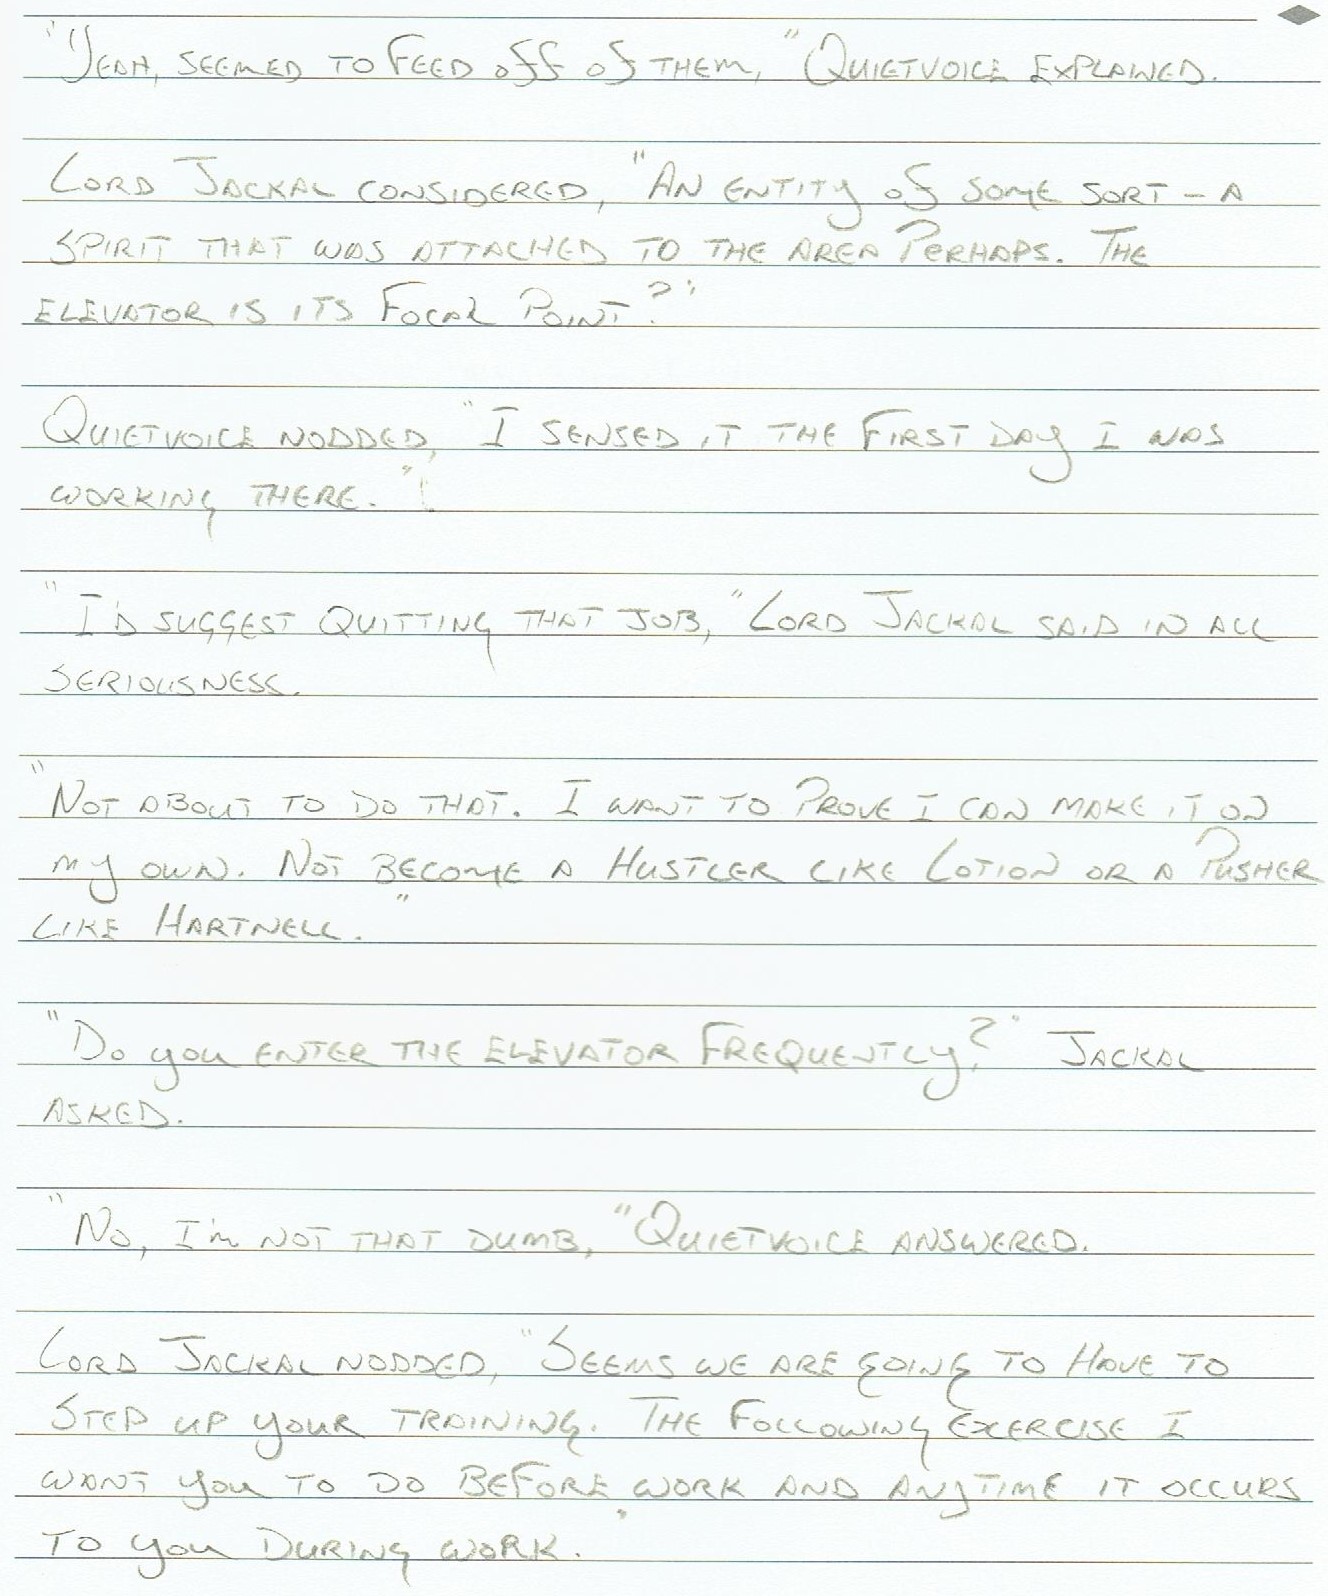 "Yeah, seemed to feed off of them," Quietvoice explained.
Lord Jackal considered, "An entity of some sort - a
spirit that was attached to the area perhaps. The
elevator is its focal point?"
Quietvoice nodded, "I sensed it the first day I was
working there."
"I'd suggest quitting that job," Lord Jackal said in all
seriousness.
"Not about to do that. I want to prove I can make it on
my own. Not become a hustler like Lotion or a pusher
like Hartnell."
"Do you enter the elevator frequently?" Jackal
asked.
"No, I'm not that dumb," Quietvoice answered.
Lord Jackal nodded, "Seems we are going to have to
step up your training. The following exercise I
want you to do before work and anytime it occurs
to you during work."